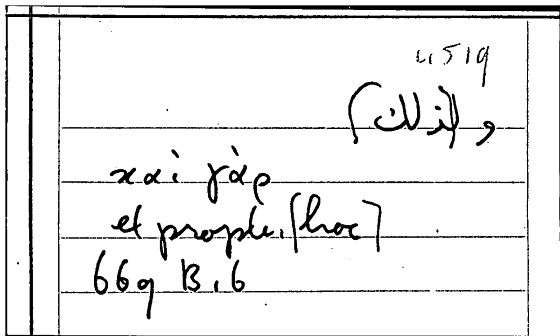 4519
و(لذلك)
καὶ γὰρ
et propte.[hoc]
669 B.6